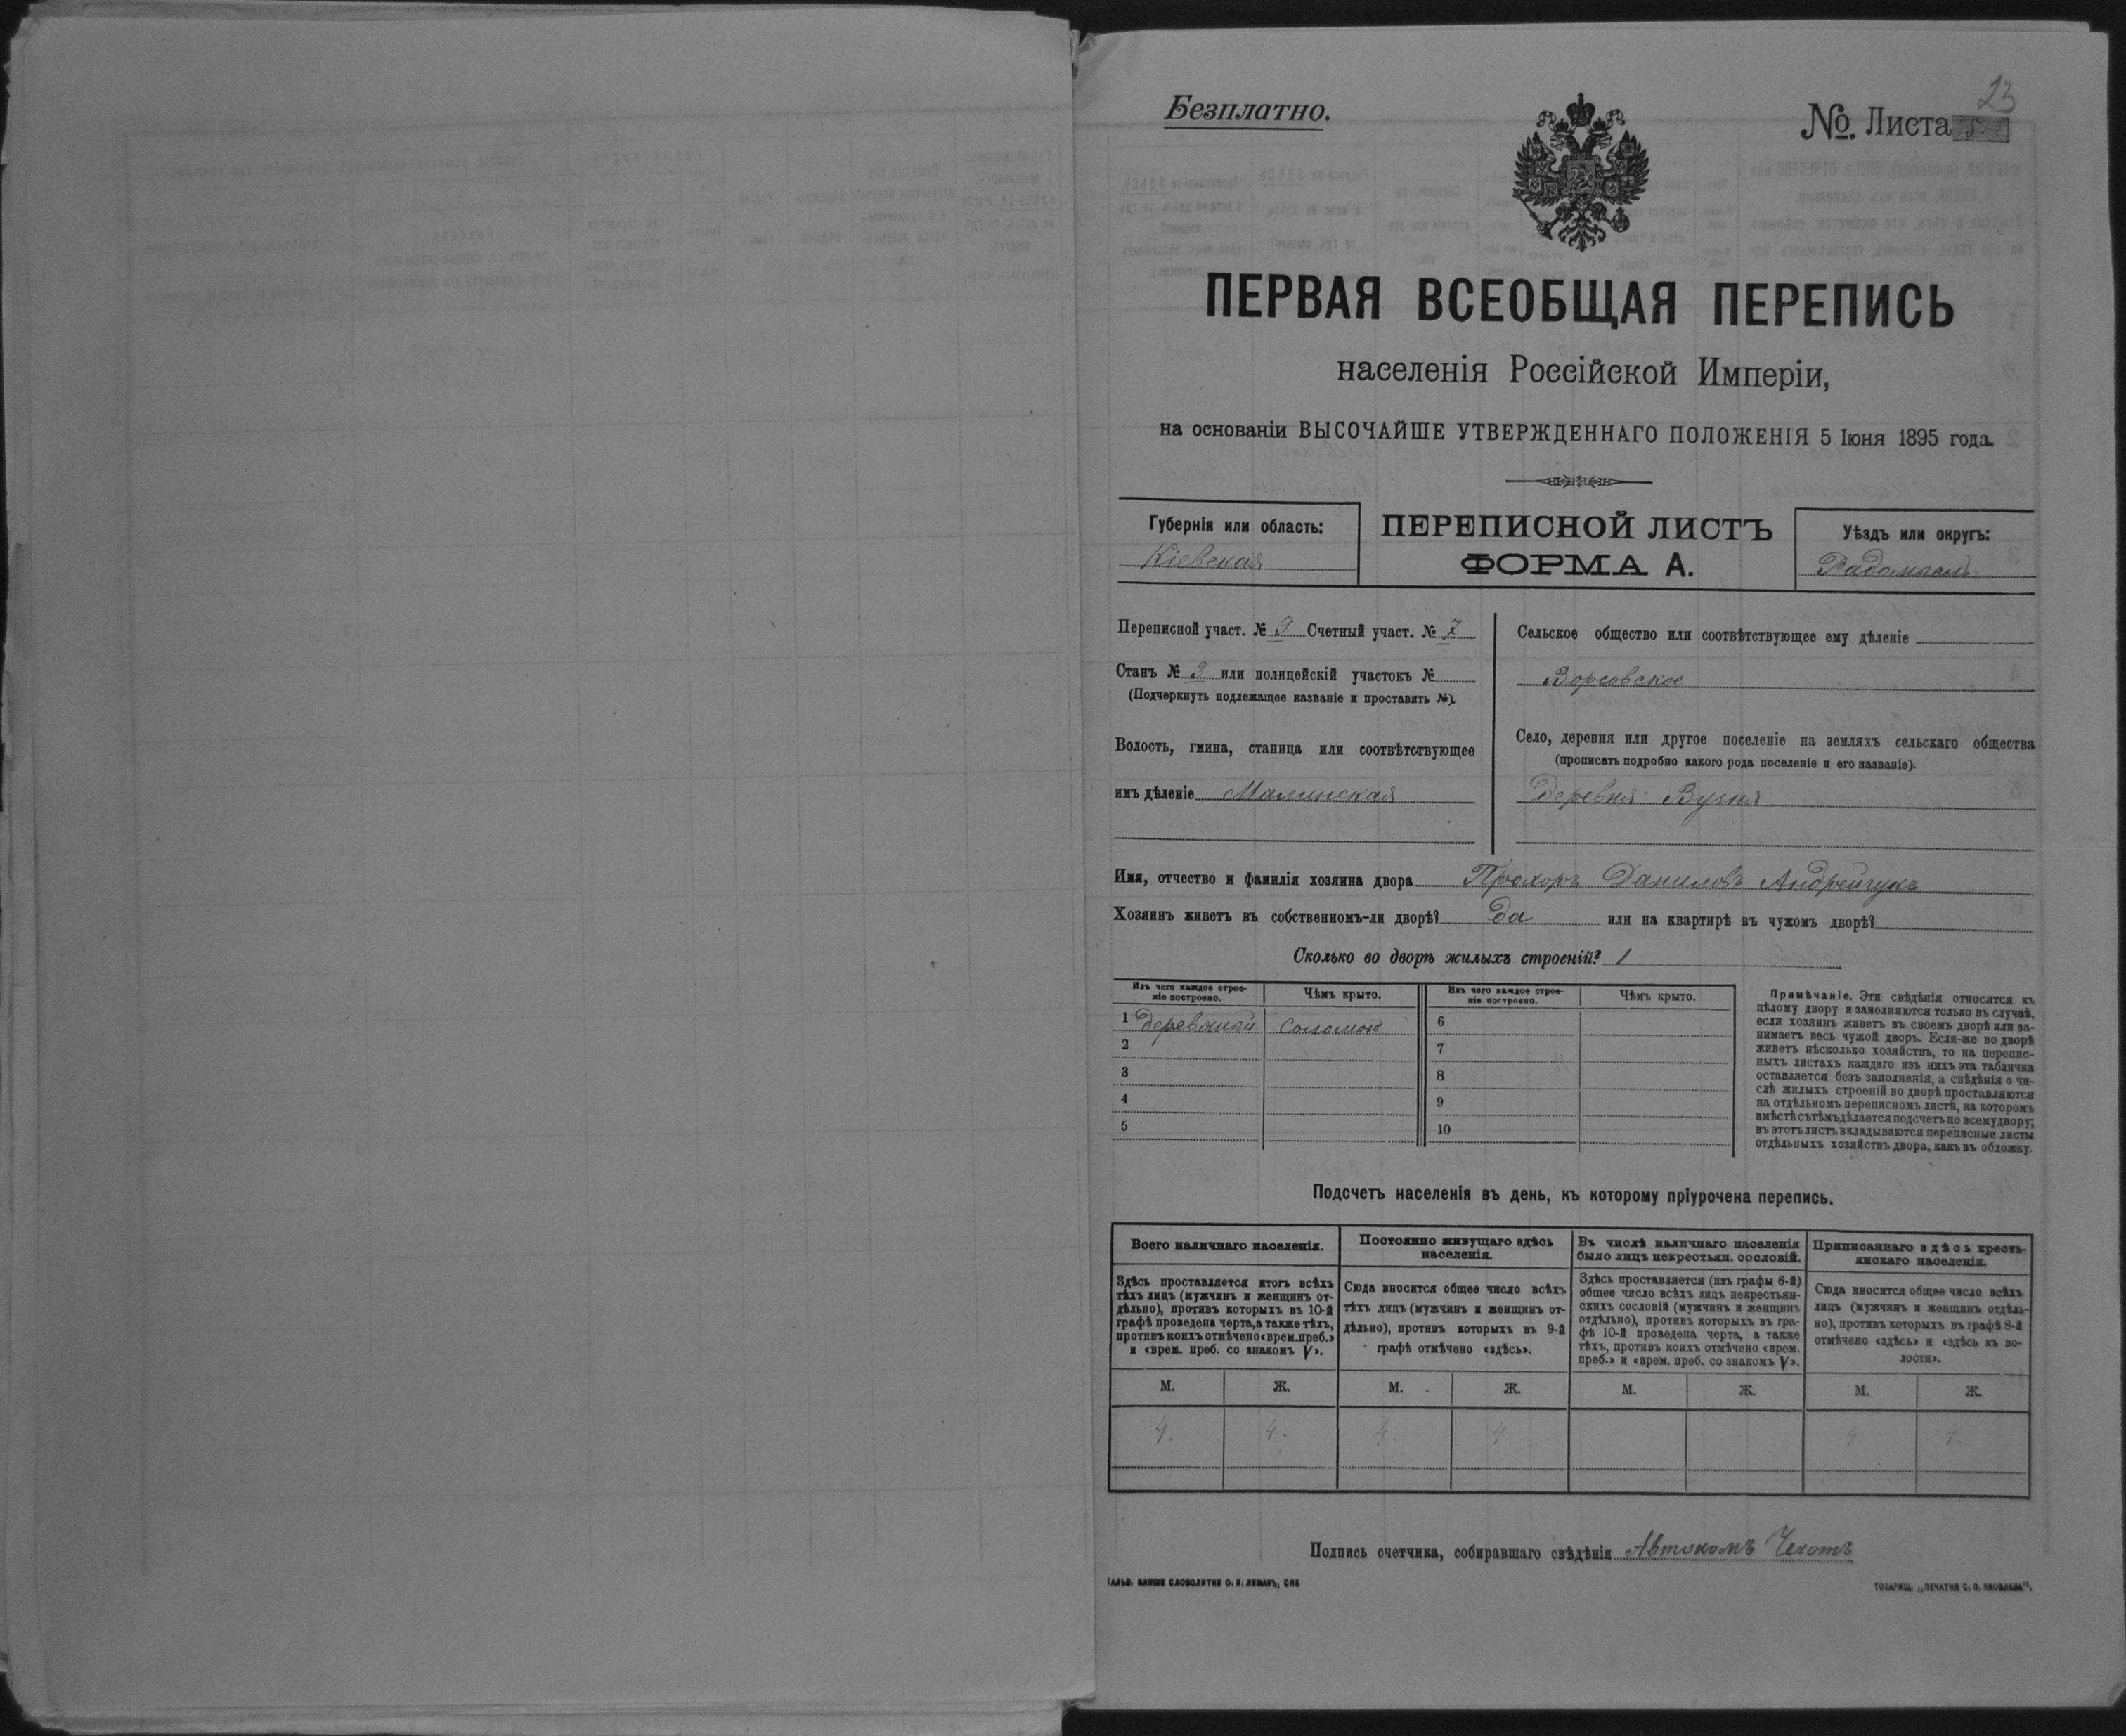 23
Безплатно.
№. Листа
ПЕРВАЯ ВСЕОБЩАЯ ПЕРЕПИСЬ
населенія Россійской Имперіи,
на основаніи ВЫСОЧАЙШЕ УТВЕРЖДЕННАГО ПОЛОЖЕНІЯ 5 Іюня 1895 года.
Губернія или область:
Кіевская
ПЕРЕПИСНОЙ ЛИСТЪ
ФОРМА А.
Уѣздъ или округъ:
Радомысль
Переписной участ. № 9 Счетный участ. № 7
Станъ № 3 или полицейскій участокъ №
(Подчеркнуть подлежащее названіе и проставить №).
Волость, гмина, станица или соотвѣтствующее
имъ дѣленіе Малинская
Сельское общество или соотвѣтствующее ему дѣленіе
Ворсовское
Село, деревня или другое поселеніе на земляхъ сельскаго общества
(прописать подробно какого рода поселеніе и его названіе).
Деревня Вухня
Имя, отчество и фамилія хозяина двора Прохоръ Даниловъ Андрейчукъ
Хозяинъ живетъ въ собственномъ-ли дворѣ? да или на квартирѣ въ чужомъ дворѣ?
Сколько во дворѣ жилыхъ строеній? 1
Изъ чего каждое строе-
ніе построено.
Чѣмъ крыто.
Изъ чего каждое строе-
ніе построено.
Чѣмъ крыто.
1 деревяной соломою 6
2 7
3 8
4 9
5 10
Примѣчаніе. Эти свѣдѣнія относятся къ
цѣлому двору и заполняются только въ случаѣ,
если хозяинъ живетъ въ своемъ дворѣ или за-
нимаетъ весь чужой дворъ. Если-же во дворѣ
живетъ нѣсколько хозяйствъ, то на перепис-
ныхъ листахъ каждаго изъ нихъ эта табличка
оставляется безъ заполненія, а свѣдѣнія о чи-
слѣ жилыхъ строеній во дворѣ проставляются
на отдѣльномъ переписномъ листѣ, на которомъ
вмѣстѣ съ тѣмъ дѣлается подсчетъ по всему двору;
въ этотъ листъ вкладываются переписные листы
отдѣльныхъ хозяйствъ двора, какъ въ обложку.
Подсчетъ населенія въ день, къ которому пріурочена перепись.
Всего наличнаго населенія.
Здѣсь проставляется итогъ всѣхъ
тѣхъ лицъ (мужчинъ и женщинъ от-
дѣльно), противъ которыхъ въ 10-й
графѣ проведена черта, а также тѣхъ,
противъ коихъ отмѣчено «врем. преб.»
и «врем. преб. со знакомъ V».
Постоянно живущаго здѣсь
населенія.
Сюда вносится общее число всѣхъ
тѣхъ лицъ (мужчинъ и женщинъ от-
дѣльно), противъ которыхъ въ 9-й
графѣ отмѣчено «здѣсь».
Въ числѣ наличнаго населенія
было лицъ некрестьян. сословій.
Здѣсь проставляется (изъ графы 6-й)
общее число всѣхъ лицъ некрестьян-
скихъ сословій (мужчинъ и женщинъ
отдѣльно), противъ которыхъ въ гра-
фѣ 10-й проведена черта, а также
тѣхъ, противъ коихъ отмѣчено «врем.
преб.» и «врем. преб. со знакомъ V».
Приписаннаго здѣсь кресть-
янскаго населенія.
Сюда вносится общее число всѣхъ
лицъ (мужчинъ и женщинъ отдѣль-
но), противъ которыхъ въ графѣ 8-й
отмѣчено «здѣсь» и «здѣсь къ во-
лости».
М. Ж. М. Ж. М. Ж. М. Ж.
4. 4. 4. 4 4. 4.
Подпись счетчика, собиравшаго свѣдѣнія
ГАЛЬВ. КЛИШЕ СЛОВОЛИТНИ О. И. ЛЕМАНЪ, СПБ
ТОВАРИЩ. „ПЕЧАТНЯ С. П. ЯКОВЛЕВА".